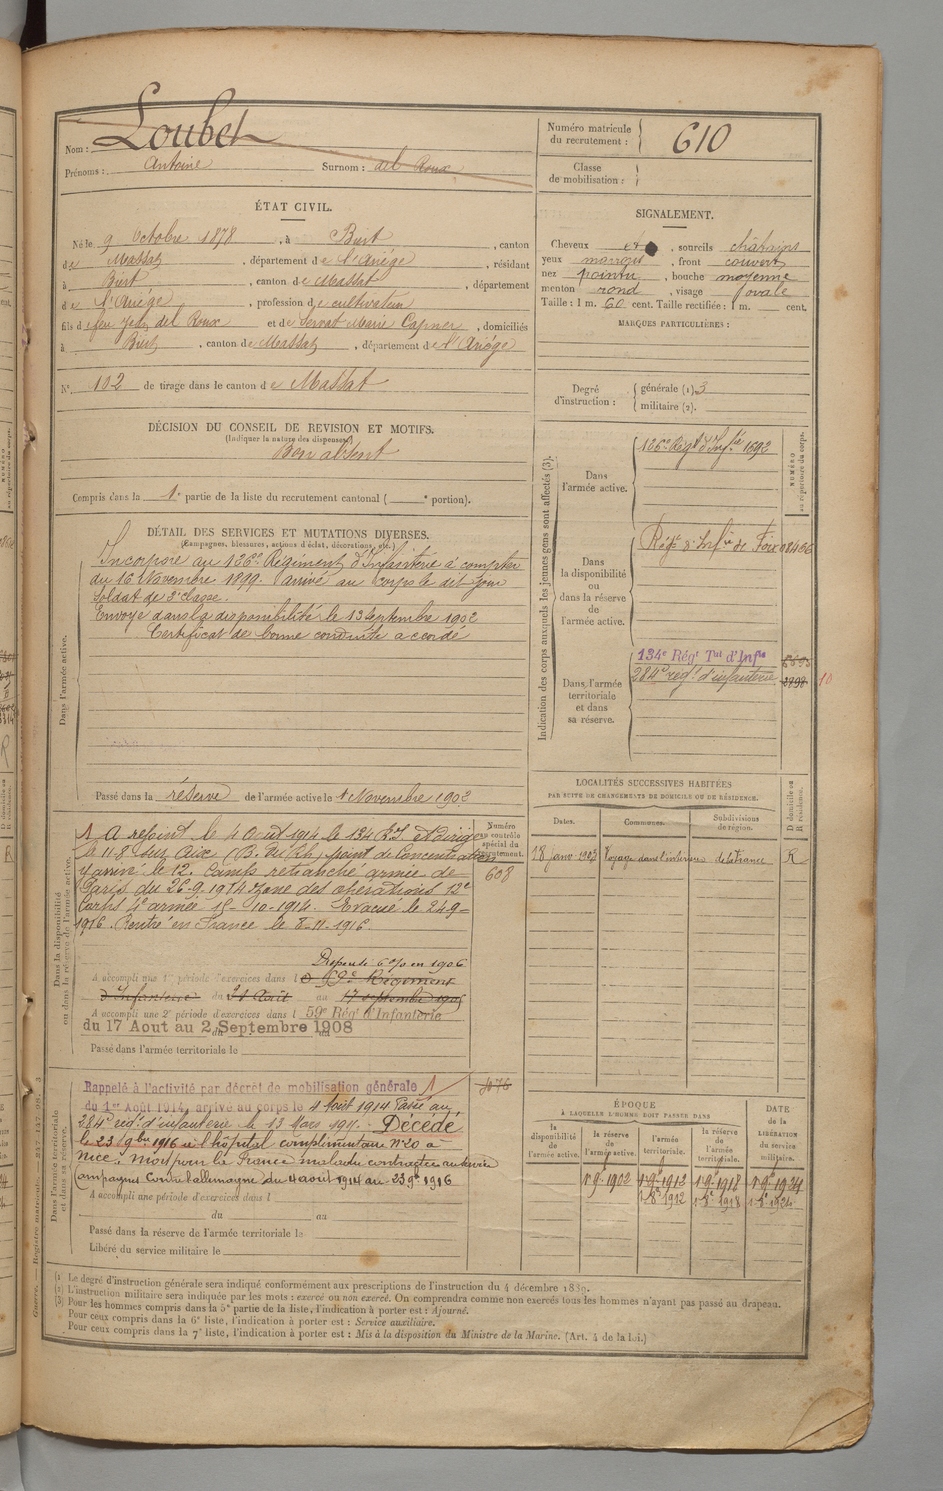 Nom : Loubet
Prénoms : Antoine Surnom : del Roux
Numéro matricule du recrutement : 610
Classe de mobilisation :
ÉTAT CIVIL.
Né le 9 Octobre 1878, à Biert, canton
de Massat, département de l'Ariège, résidant
à Biert, canton de Massat, département
de l'Ariège, profession de cultivateur
fils de feu Jean del Roux et de Servat Marie, domiciliés
à Biert, canton de Massat, département de l'Ariège
N° 102 de tirage dans le canton de Massat
SIGNALEMENT.
Cheveux et, sourcils châtains
yeux marrons, front couvert
nez pointu, bouche moyenne
menton rond, visage ovale
Taille : 1 m. 60 cent. Taille rectifiée : 1 m. cent.
MARQUES PARTICULIÈRES :
Degré d'instruction : générale (1) 3
militaire (2).
DÉCISION DU CONSEIL DE REVISION ET MOTIFS.
(Indiquer la nature des dispenses)
Bon absent
Compris dans la 1e partie de la liste du recrutement cantonal ( e portion).
DÉTAIL DES SERVICES ET MUTATIONS DIVERSES.
(Campagnes, blessures, actions d'éclat, décorations, etc.)
Dans l'armée active.
Incorporé au 126e Régiment d'Infanterie à compter
du 16 Novembre 1899. Arrivé au corps le dit jour
soldat de 2e classe.
Envoyé dans la disponibilité le 13 Septembre 1902
Certificat de bonne conduite accordé
Passé dans la réserve de l'armée active le 1 Novembre 1902
Indication des corps auxquels les jeunes gens sont affectés (3).
NUMÉRO au répertoire du corps.
Dans l'armée active.
126e Régt d'Infie 1692
Dans la disponibilité ou dans la réserve de l'armée active.
Régt d'Infie de Foix 08406
Dans l'armée territoriale et dans sa réserve.
134e Régt Tal d'Infie
284e régt d'infanterie 2898 10
LOCALITÉS SUCCESSIVES HABITÉES
PAR SUITE DE CHANGEMENTS DE DOMICILE OU DE RÉSIDENCE.
Dates. Communes. Subdivisions de région. D domicile ou R résidence.
18 janv 1903 Voyage dans l'intérieur de la France R
Dans la disponibilité ou dans la réserve de l'armée active.
Numéro au contrôle spécial du recrutement.
608
1 A rejoint le 4 Août 1914 le 134 R.I. et dirigé
le 11-8 sur Aix (B. du Rh.) point de Concentration
y arrivé le 12. Camps retranché armée de
Paris du 26-9-1914. Zone des opérations 12e
Corps 4e armée 15-10-1914. Evacué le 24-9-
1916. Rentré en France le 8-11-1916.
Dispensé en 1906
A accompli une 1re période d'exercices dans le 59e Régiment
d'Infanterie du 21 Août au 17 septembre 1906
A accompli une 2e période d'exercices dans l 59e Régt d'Infanterie
du 17 Aout au 2 Septembre 1908
Passé dans l'armée territoriale le
Dans l'armée territoriale et dans sa réserve.
Rappelé à l'activité par décret de mobilisation générale 1
du 1er Août 1914, arrivé au corps le 4 Août 1914. Passé au
284e régt d'infanterie le 13 Mars 191. Décédé
le 23 9bre 1916 à l'hôpital complémentaire N° 20 à
Nice. Mort pour la France maladie contractée au service
Campagne Contre l'allemagne du 4 août 1914 au 23 9bre 1916
A accompli une période d'exercices dans l
du au
Passé dans la réserve de l'armée territoriale le
Libéré du service militaire le
ÉPOQUE
À LAQUELLE L'HOMME DOIT PASSER DANS
DATE de la LIBÉRATION du service militaire.
la disponibilité de l'armée active. la réserve de l'armée active. l'armée territoriale. la réserve de l'armée territoriale.
1 9e 1902 1 9e 1912 1 9e 1918 1 9e 1924
1 8e 1912 1 8e 1918 1 8e 1924
(1) Le degré d'instruction générale sera indiqué conformément aux prescriptions de l'instruction du 4 décembre 1889.
(2) L'instruction militaire sera indiquée par les mots : exercé ou non exercé. On comprendra comme non exercés tous les hommes n'ayant pas passé au drapeau.
(3) Pour les hommes compris dans la 5e partie de la liste, l'indication à porter est : Ajourné.
Pour ceux compris dans la 6e liste, l'indication à porter est : Service auxiliaire.
Pour ceux compris dans la 7e liste, l'indication à porter est : Mis à la disposition du Ministre de la Marine. (Art. 4 de la loi.)